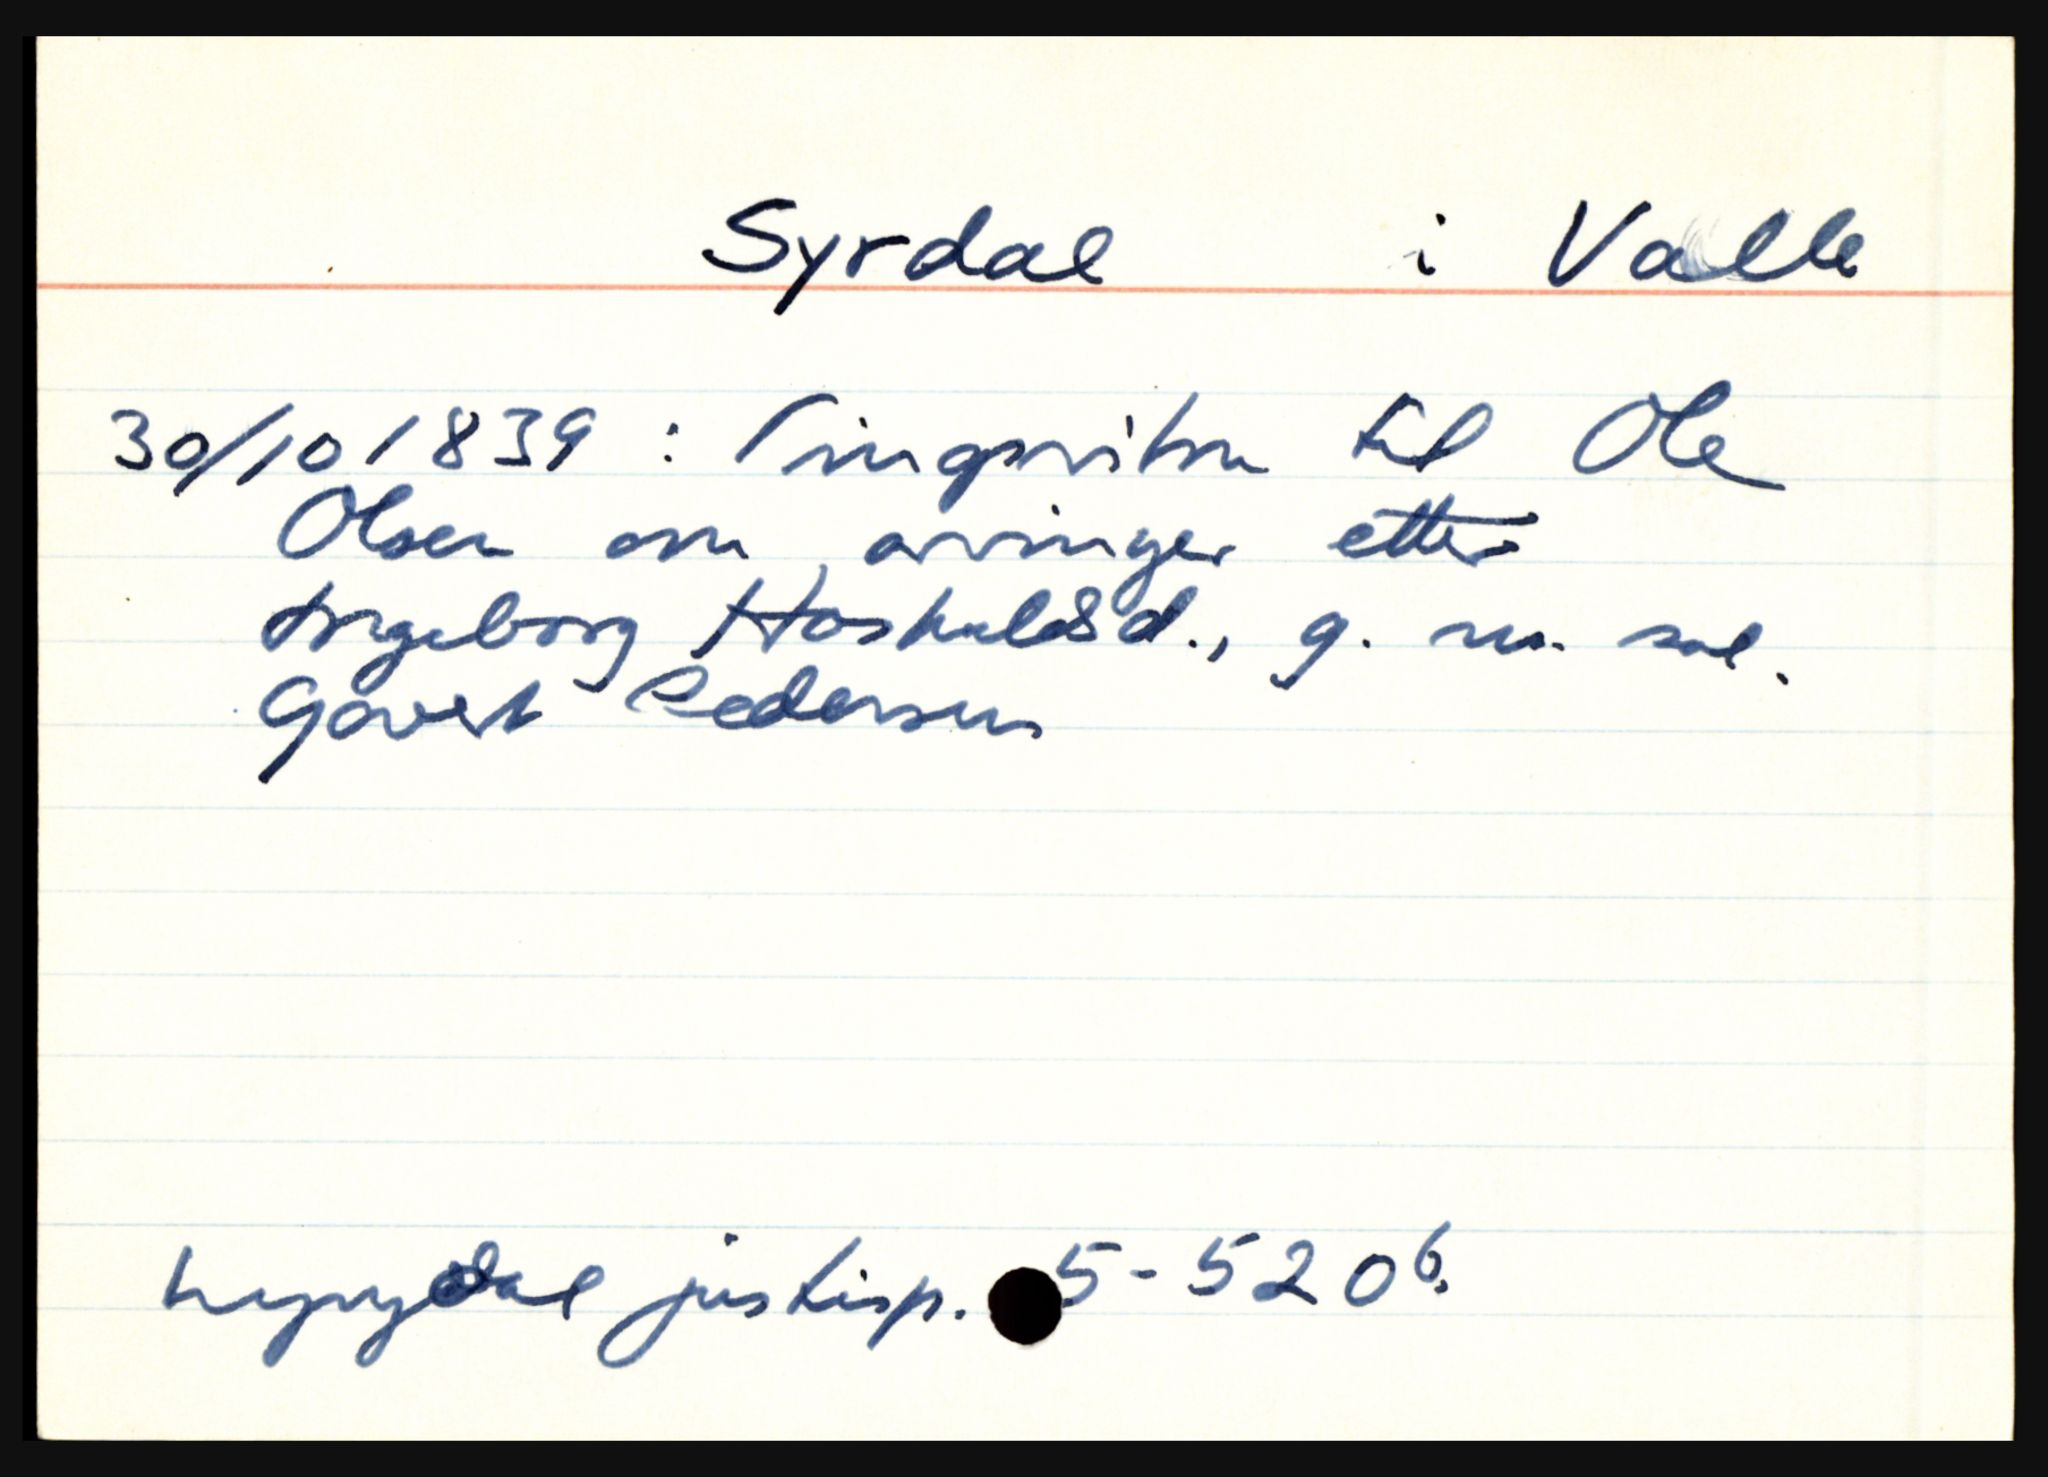 Syrdal i Valle
30/10 1839 : Tingsvitne til Ole
Olsen om arvinger etter
Ingeborg Hoskuldsd., g. m. sal.
Govert Pedersen
Lyngdal justisp. 5-520b